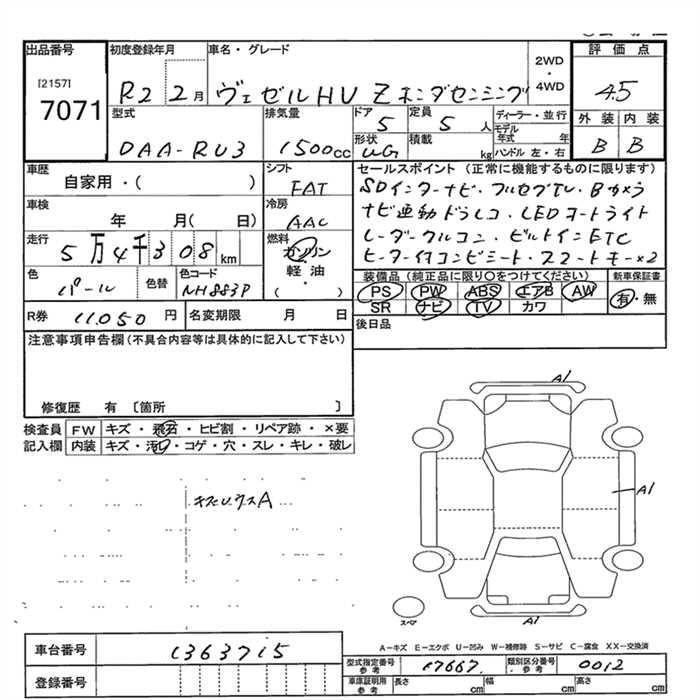 出品番号
[2157]
7071
初度登録年月
R2 2月
車名・グレード
ヴェゼルHV Zホンダセンシング
2WD
・
4WD
評価点
4.5
外装 内装
B B
型式
DAA-RU3
排気量
1500cc
ドア
5
定員
5人
形状
WG
積載
kg
ディーラー・並行
モデル年式 年
ハンドル 左・右
車歴
自家用・( )
シフト
FAT
車検
年 月( 日)
冷房
AAC
走行
5万4千308km
燃料
ガソリン
・
軽油
・
( )
色
パール
色替
色コード
NH883P
R券 11,050円
名変期限 月 日
セールスポイント (正常に機能するものに限ります)
SDインターナビ・フルセグTV・Bカメラ
ナビ連動ドラレコ・LEDヘッドライト
レーダークルコン・ビルトインETC
ヒーター付コンビシート・スマートキー×2
装備品 (純正品に限り○をつけてください)
PS PW ABS エアB AW
SR ナビ TV カワ
新車保証書
有・無
後日品
注意事項申告欄(不具合内容等は具体的に記入して下さい)
修復歴 有 〔箇所 〕
検査員記入欄
FW キズ・飛石・ヒビ割・リペア跡・×要
内装 キズ・汚レ・コゲ・穴・スレ・キレ・破レ
A1
A1
A1
スペア
A-キズ E-エクボ U-凹み W-補修跡 S-サビ C-腐食 XX-交換済
車台番号 1363715
登録番号
型式指定番号参考 17667
類別区分番号参考 0012
車庫証明用参考 長さ cm 幅 cm 高さ cm